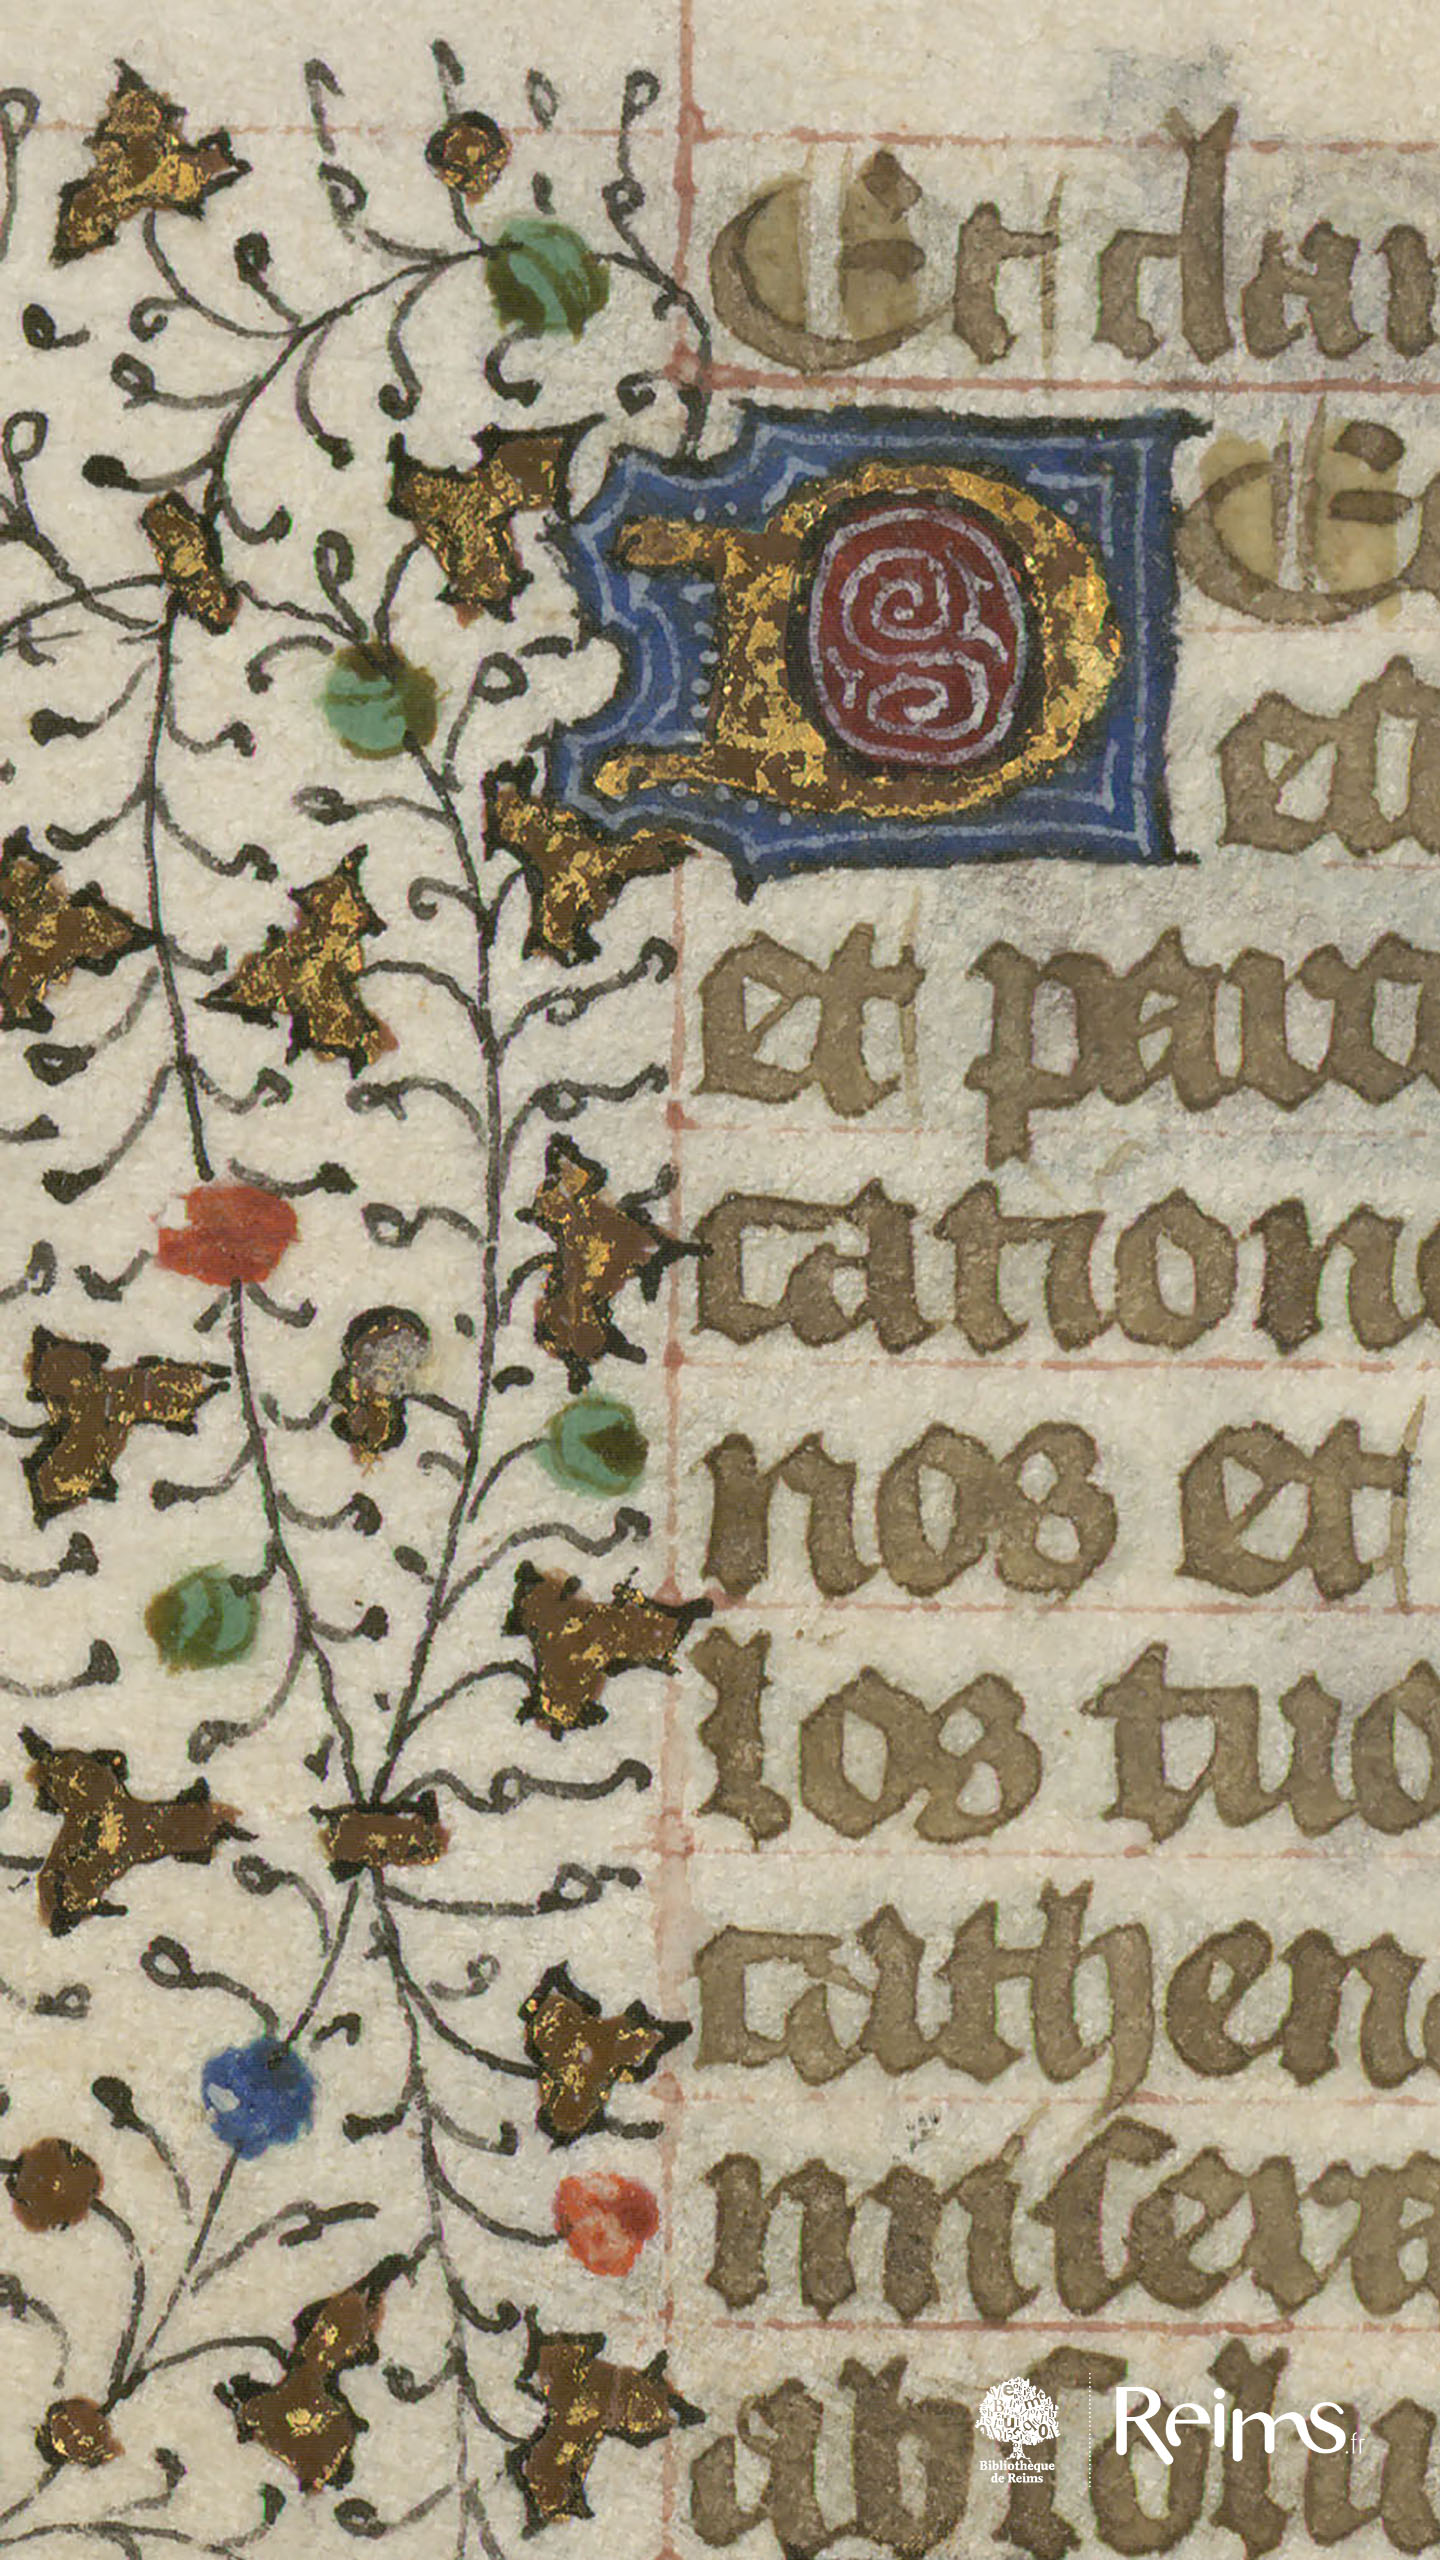 Et clam
DE
eſt
et parc
catione
nos et
los tuo
cathen
miſera
abſolu
Bibliothèque
de Reims
Reims.fr